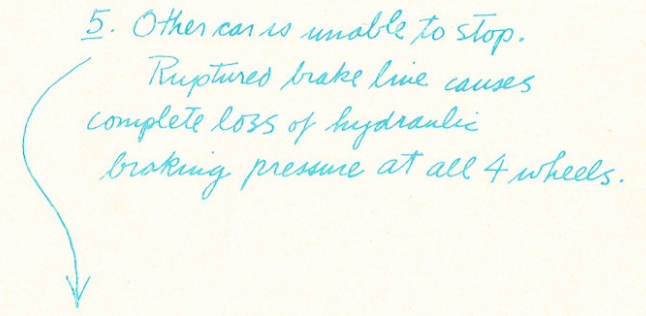 5. Other car is unable to stop.
Ruptured brake line causes
complete loss of hydraulic
braking pressure at all 4 wheels.